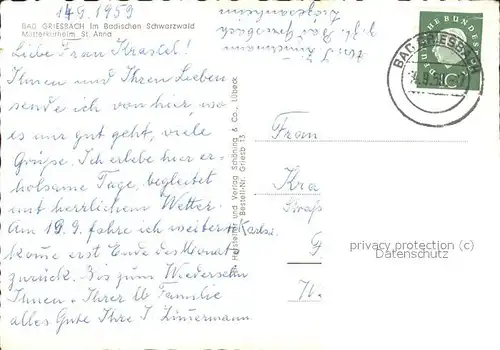 14.9.1959
BAD GRIESBACH im Badischen Schwarzwald
Mütterkurheim St. Anna
Liebe Frau Krastel!
Ihnen und Ihren Lieben
sende ich von hier, wo
es mir gut geht, viele
Grüße. Ich erlebe hier er-
holsame Tage, begleitet
mit herrlichem Wetter.
Am 19.9. fahre ich weiter
kome erst Ende des Monats
zurück. Bis zum Wiedersehn
Ihnen + Ihrer lb Familie
alles Gute Ihre I Zimmermann
Hersteller und Verlag Schöning & Co., Lübeck
Bestell-Nr. Griesb 13
Abs. I Zimmermann
z. Zt. Bad Griesbach
DEUTSCHE BUNDESPOST
10
BAD GRIESBACH
Frau
Kra
Straß
privacy protection (c)
Datenschutz